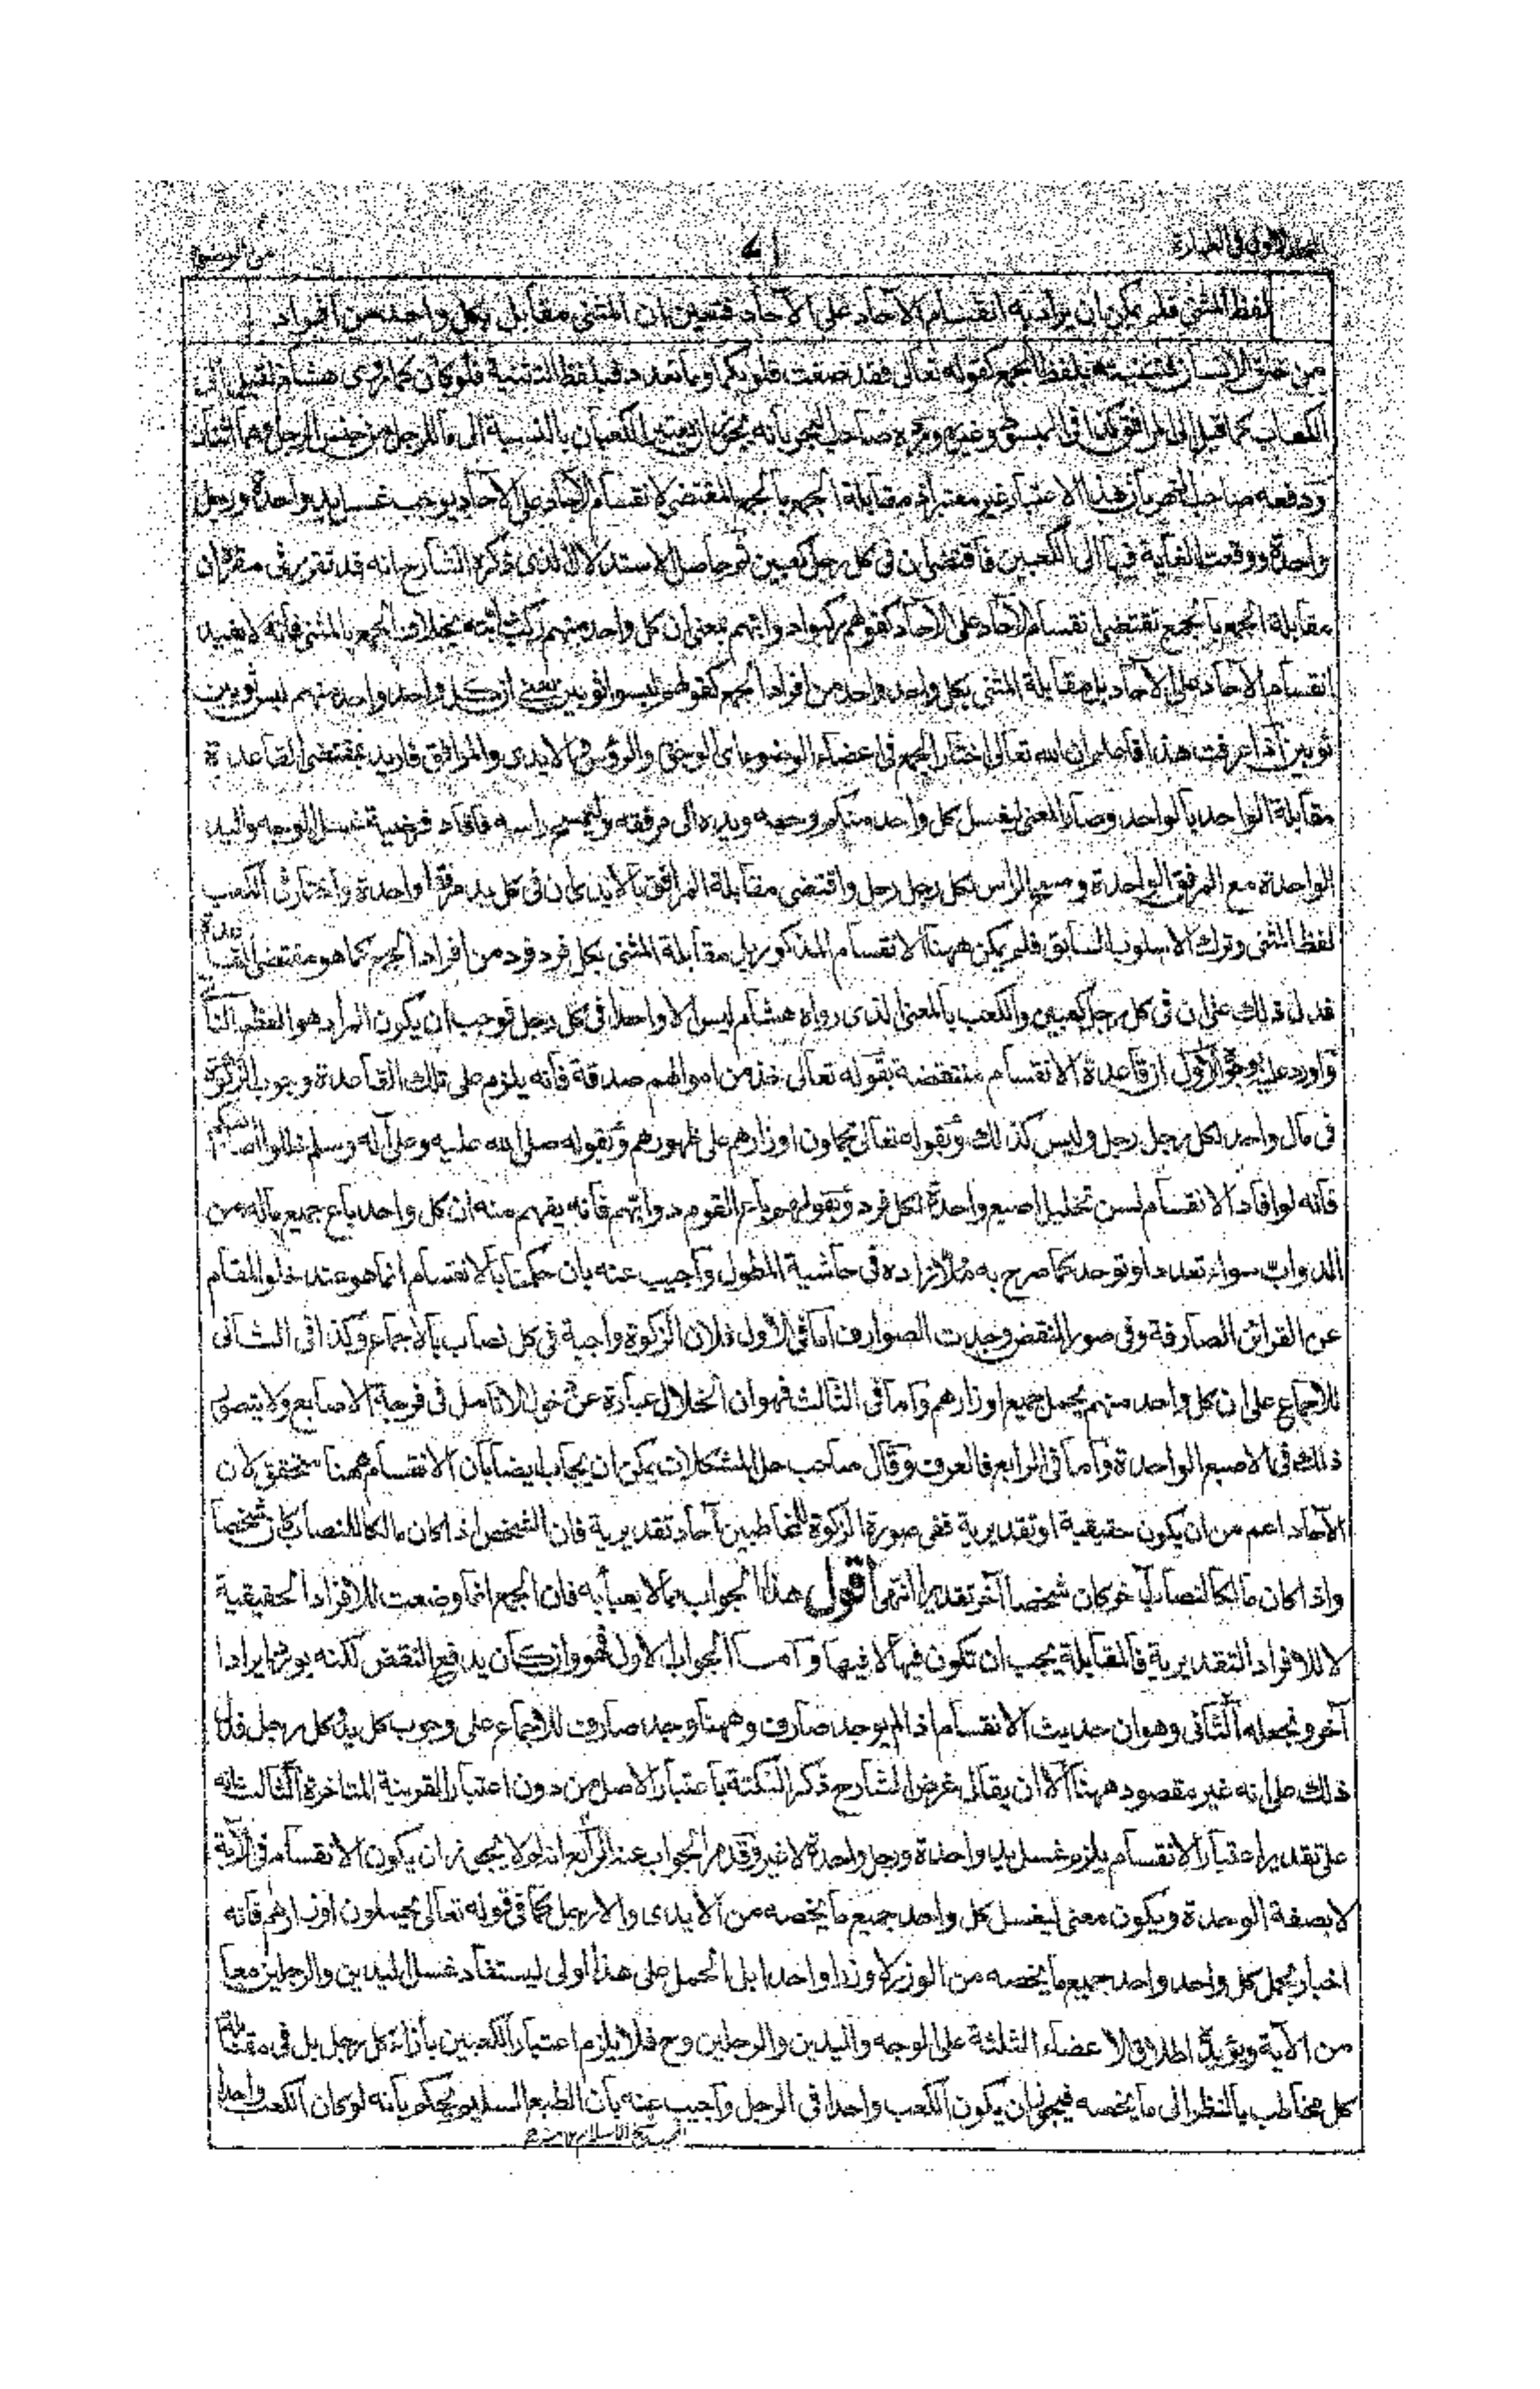 المجلد الاول فى الطهارة
لفظ المثنى فلم يمكن ان يراد به انقسام الآحاد على الآحاد فتعين ان المثنى مقابل بكل واحد من افراد
من خلق الانسان فتثنيته بلفظ الجمع كقوله تعالى فقد صغت قلوبكما وما تعدد فبلفظ التثنية فلو كان كما روى هشام لقيل الى
الكعاب كما قيل الى المرافق كذا فى المبسوط وغيره ورده صاحب البحر بانه يجوز ان يعتبر الكعبان بالنسبة الى ما للرجل من جنس الرجل وهما اثنان
ودفعه صاحب النهر بان هذا الاعتبار غير معتبر اذ مقابلة الجمع بالجمع المقتضى لانقسام الآحاد على الآحاد يوجب غسل يد واحدة ورجل
واحدة ووقعت الغاية فيها الى الكعبين فاقتضى ان فى كل رجل كعبين ثم حاصل الاستدلال الذى ذكره الشارح انه قد تقرر فى مقره ان
مقابلة الجمع بالجمع تقتضى انقسام الآحاد على الآحاد كقولهم ركبوا دوابهم بمعنى ان كل واحد منهم ركب دابته بخلاف الجمع بالمثنى فانه لا يفيد
انقسام الآحاد على الآحاد بل مقابلة المثنى بكل واحد واحد من افراد الجمع كقولهم لبسوا ثوبين بمعنى ان كل واحد واحد منهم لبس ثوبين
ثوبين اذا عرفت هذا فاعلم ان الله تعالى اختار الجمع فى اعضاء الوضوء اى الوجوه والرؤس والايدى والمرافق فاريد بمقتضى القاعدة
مقابلة الواحد بالواحد وصار المعنى ليغسل كل واحد منكم وجهه ويده الى مرفقه وليمسح راسه فافاد فرضية غسل الوجه واليد
الواحدة مع المرفق الواحدة ومسح الراس لكل رجل رجل واقتضى مقابلة المرافق بالايدى ان فى كل يد مرفقا واحدة واختار فى الكعب
لفظ المثنى وترك الاسلوب السابق فلم يمكن ههنا الانقسام المذكور بل مقابلة المثنى بكل فرد فرد من افراد الجمع كما هو مقتضى القاعدة
فدل ذلك على ان فى كل رجل كعبين والكعب بالمعنى الذى رواه هشام ليس الا واحدا فى كل رجل فوجب ان يكون المراد هو العظم الناتئ
واورد عليه بوجوه الاول ان قاعدة الانقسام منتقضة بقوله تعالى خذ من اموالهم صدقة فانه يلزم على تلك القاعدة وجوب الزكوة
فى مال واحد لكل رجل رجل وليس كذلك وبقوله تعالى يحملون اوزارهم على ظهورهم وبقوله صلى الله عليه وعلى آله وسلم خللوا اصابعكم
فانه لو افاد الانقسام لسن تخليل اصبع واحدة لكل فرد وبقولهم باع القوم دوابهم فانه يفهم منه ان كل واحد باع جميع ماله من
الدواب سواء تعدد او توحد كما صرح به ملا زاده فى حاشية المطول واجيب عنه بان حكمنا بالانقسام انما هو عند خلو المقام
عن القرائن الصارفة وفى صور النقض وجدت الصوارف اما فى الاول فلان الزكوة واجبة فى كل نصاب بالاجماع وكذا فى الثانى
للاجماع على ان كل واحد منهم يحمل جميع اوزارهم واما فى الثالث فهو ان الخلال عبارة عن دخول الانامل فى فرجة الاصابع ولا يتصور
ذلك فى الاصبع الواحدة واما فى الرابع فالعرف وقال صاحب حل المشكلات يمكن ان يجاب ايضا بان الانقسام ههنا متحقق لان
الآحاد اعم من ان يكون حقيقية او تقديرية ففى صورة الزكوة للمخاطبين آحاد تقديرية فان الشخص اذا كان مالكا للنصاب كان شخصا
واذا كان مالكا لنصاب آخر كان شخصا آخر تقديرا انتهى اقول هذا الجواب مما لا يعبأ به فان الجمع انما وضعت للافراد الحقيقية
لا للافراد التقديرية فالمقابلة يجب ان تكون فيها لا فيها واما الجواب الاول فهو وان كان يدفع النقض لكنه يورث ايرادا
آخر ونجعله الثانى وهو ان حديث الانقسام اذا لم يوجد صارف وههنا وجد صارف للاجماع على وجوب كل يد كل رجل فدل
ذلك على انه غير مقصود ههنا الا ان يقال غرض الشارح ذكر النكتة باعتبار الاصل من دون اعتبار القرينة المتاخرة الثالث انه
على تقدير اعتبار الانقسام يلزم غسل يد واحدة ورجل واحدة لا غير وقد مر الجواب عنه الرابع انه لم لا يجوز ان يكون الانقسام فى الآية
لا بصفة الوحدة ويكون معنى ليغسل كل واحد جميع ما يخصه من الايدى والارجل كما فى قوله تعالى يحملون اوزارهم فانه
اخبار بحمل كل واحد واحد جميع ما يخصه من الوزر لا وزرا واحدا بل الحمل على هذا اولى ليستفاد غسل اليدين والرجلين معا
من الآية ويؤيده اطلاق الاعضاء الثلثة على الوجه واليدين والرجلين وح فلا يلزم اعتبار الكعبين بازاء كل رجل بل فى مقابلة
كل مخاطب بالنظر الى ما يخصه فيجوز ان يكون الكعب واحدا فى الرجل واجيب عنه بان الطبع السليم يحكم بانه لو كان الكعب واحدا